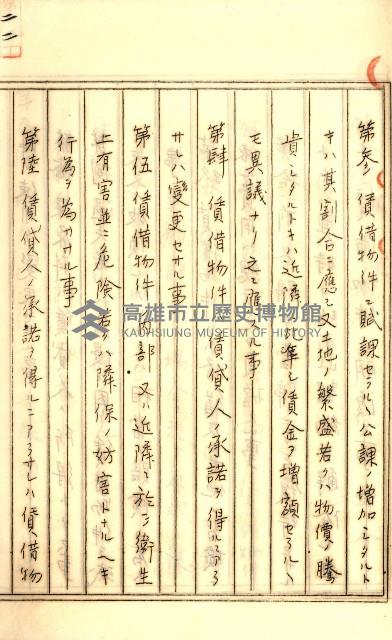 第参 賃借物件ニ賦課セラルヽ公課ノ増加シタルト
キハ其割合ニ應シ又土地ノ繁盛若クハ物價ノ騰
貴シタルトキハ近隣ニ準シ賃金ヲ増額セラルヽ
モ異議ナク之ニ應スル事
第肆 賃借物件ハ賃貸人ノ承諾ヲ得ルニアラ
サレハ變更セサル事
第伍 賃借物件ノ内部又ハ近隣ニ於テ衛生
上有害並ニ危険若クハ隣保ノ妨害トナルヘキ
行為ヲ為サヽル事
第陸 賃貸人ノ承諾ヲ得ルニアラサレハ賃借物
高雄市立歷史博物館
KAOHSIUNG MUSEUM OF HISTORY